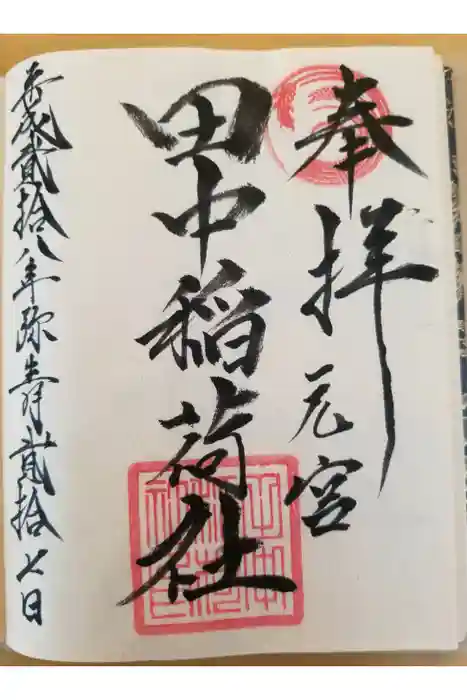 奉拝
元宮
田中稲荷社
平成貳拾八年弥生月貳拾七日